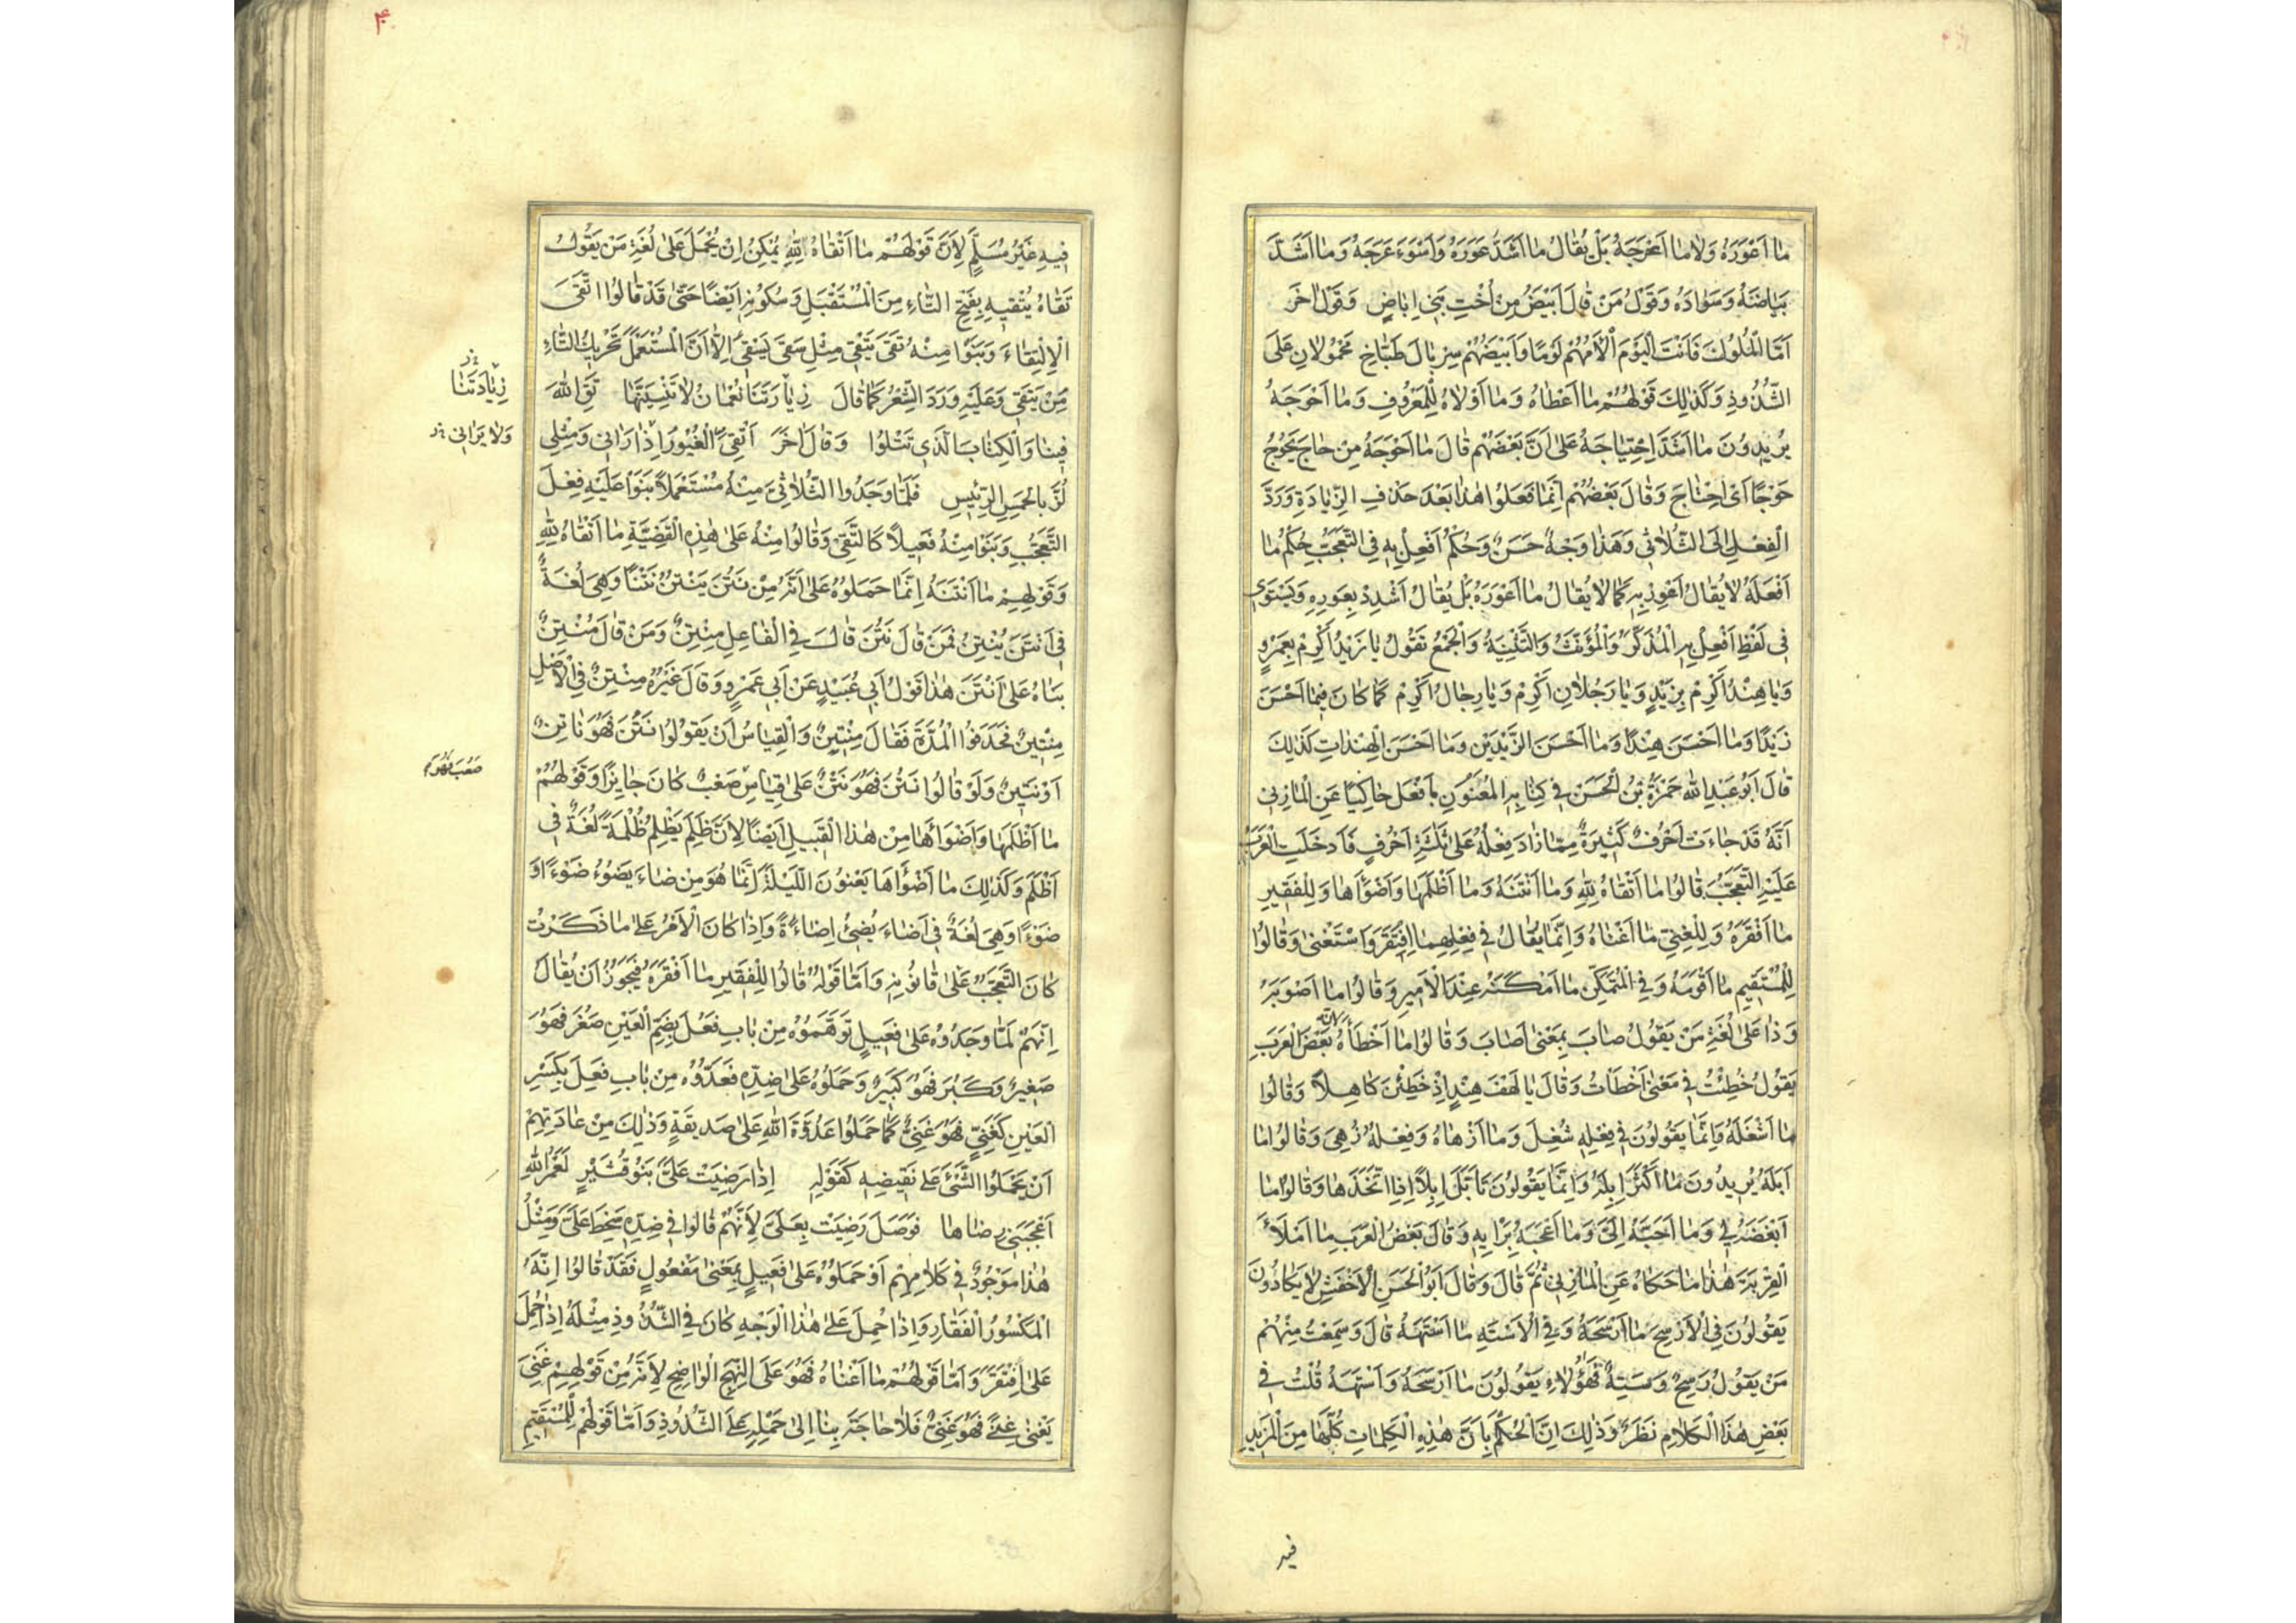 مَا أَعْوَرَهُ وَلَا مَا أَعْرَجَهُ بَلْ يُقَالُ مَا أَشَدَّ عَوَرَهُ وَأَسْوَءَ عَرَجَهُ وَمَا أَشَدَّ
بَيَاضَهُ وَسَوَادَهُ وَقَوْلُ مَنْ قَالَ أَبْيَضُ مِنْ أُخْتِ بَنِي إِبَاضٍ وَقَوْلُ اٰخَرَ
أَمَّا الْمُلُوكُ فَأَنْتَ الْيَوْمَ أَلْأَمُهُمْ لُؤْمًا وَأَبْيَضُهُمْ سِرْبَالَ طَبَّاخِ مَحْمُولَانِ عَلَى
الشُّذُوذِ وَكَذٰلِكَ قَوْلُهُمْ مَا أَعْطَاهُ وَمَا أَوْلَاهُ لِلْمَعْرُوفِ وَمَا أَحْوَجَهُ
يُرِيدُونَ مَا أَشَدَّ اِحْتِيَاجَهُ عَلَى أَنَّ بَعْضَهُمْ قَالَ مَا أَحْوَجَهُ مِنْ حَاجَ يَحُوجُ
حَوْجًا أَيْ اِحْتَاجَ وَقَالَ بَعْضُهُمْ إِنَّمَا فَعَلُوا هٰذَا بَعْدَ حَذْفِ الزِّيَادَةِ وَرَدَّ
الْفِعْلِ إِلَى الثُّلَاثِي وَهَذَا وَجْهٌ حَسَنٌ وَحُكْمُ أَفْعِلْ بِهِ فِي التَّعَجُّبِ حُكْمُ مَا
أَفْعَلَهُ لَا يُقَالُ أَعْوِرْ بِهِ كَمَا لَا يُقَالُ مَا أَعْوَرَهُ بَلْ يُقَالُ أَشْدِدْ بِعَوَرِهِ وَيَسْتَوِي
فِي لَفْظِ أَفْعِلْ بِهِ الْمُذَكَّرُ وَالْمُؤَنَّثُ وَالتَّثْنِيَةُ وَالْجَمْعُ تَقُولُ يَا زَيْدُ أَكْرِمْ بِعَمْرٍو
وَيَا هِنْدُ أَكْرِمْ بِزَيْدٍ وَيَا رَجُلَانِ أَكْرِمْ وَيَا رِجَالُ أَكْرِمْ كَمَا كَانَ فِيمَا أَحْسَنَ
زَيْدًا وَمَا أَحْسَنَ هِنْدًا وَمَا أَحْسَنَ الزَّيْدَيْنِ وَمَا أَحْسَنَ الْهِنْدَاتِ كَذٰلِكَ
قَالَ أَبُو عَبْدِ اللّٰهِ حَمْزَةُ بْنُ الْحَسَنِ فِي كِتَابِهِ الْمُعَنْوَنِ بِأَفْعَلَ حَاكِيًا عَنِ الْمَازِنِي
أَنَّهُ قَدْ جَاءَتْ أَحْرُفٌ كَثِيرَةٌ مِمَّا زَادَ فِعْلُهُ عَلَى ثَلٰثَةِ أَحْرُفٍ فَأَدْخَلَتِ الْعَرَبُ
عَلَيْهِ التَّعَجُّبَ قَالُوا مَا أَتْقَاهُ لِلّٰهِ وَمَا أَنْتَنَهُ وَمَا أَظْلَمَهَا وَأَضْوَأَهَا وَلِلْفَقِيرِ
مَا أَفْقَرَهُ وَلِلْغَنِيِّ مَا أَغْنَاهُ وَإِنَّمَا يُقَالُ فِي فِعْلِهِمَا افْتَقَرَ وَاسْتَغْنَى وَقَالُوا
لِلْمُسْتَقِيمِ مَا أَقْوَمَهُ وَفِي الْمُتَمَكِّنِ مَا أَمْكَنَهُ عِنْدَ الْأَمِيرِ وَقَالُوا مَا أَصْوَبَهُ
وَذَا عَلَى لُغَةِ مَنْ يَقُولُ صَابَ بِمَعْنَى أَصَابَ وَقَالُوا مَا أَخْطَأَهُ لِأَنَّ بَعْضَ الْعَرَبِ
يَقُولُ خَطِئْتُ فِي مَعْنَى أَخْطَأْتُ وَقَالَ يَا لَهْفَ هِنْدٍ إِذْ خَطِئْنَ كَاهِلًا وَقَالُوا
مَا أَشْغَلَهُ وَإِنَّمَا يَقُولُونَ فِي فِعْلِهِ شُغِلَ وَمَا أَزْهَاهُ وَفِعْلُهُ زُهِيَ وَقَالُوا مَا
أَبَلَهُ يُرِيدُونَ مَا أَكْثَرَ إِبِلَهُ وَإِنَّمَا يَقُولُونَ تَأَبَّلَ إِبِلًا إِذَا اتَّخَذَهَا وَقَالُوا مَا
أَبْغَضَهُ لِي وَمَا أَحَبَّهُ إِلَيَّ وَمَا أَعْجَبَهُ بِرَأْيِهِ وَقَالَ بَعْضُ الْعَرَبِ مَا أَمْلَأَ
الْقِرْبَةَ هٰذَا مَا حَكَاهُ عَنِ الْمَازِنِي ثُمَّ قَالَ وَقَالَ أَبُو الْحَسَنِ الْأَخْفَشِ لَا يَكَادُونَ
يَقُولُونَ فِي الْأَرْسَحِ مَا أَرْسَحَهُ وَفِي الْأَسْتَهِ مَا أَسْتَهَهُ قَالَ وَسَمِعْتُ مِنْهُمْ
مَنْ يَقُولُ رَسِحٌ وَسَتِهٌ فَهٰؤُلَاءِ يَقُولُونَ مَا أَرْسَحَهُ وَأَسْتَهَهُ قُلْتُ فِي
بَعْضِ هٰذَا الْكَلَامِ نَظَرٌ وَذٰلِكَ اِنَّ الْحُكْمَ بِأَنَّ هٰذِهِ الْكَلِمَاتِ كُلَّهَا مِنَ الْمَزِيدِ
فيه
۴۰
فِيهِ غَيْرُ مُسَلَّمٍ لِأَنَّ قَوْلَهُمْ مَا أَتْقَاهُ لِلّٰهِ يُمْكِنُ اِنْ يُحْمَلَ عَلَى لُغَةِ مَنْ يَقُولُ
تَقَاهُ يَتْقِيهِ بِفَتْحِ التَّاءِ مِنَ الْمُسْتَقْبَلِ وَسُكُونِهَا أَيْضًا حَتَّى قَدْ قَالُوا اتْقَى
الْاِتِّقَاءَ وَبَنَوْا مِنْهُ تَقَى يَتْقِي مِثْلَ سَقَى يَسْقِي إِلَّا أَنَّ الْمُسْتَعْمَلَ تَحْرِيكُ التَّاءِ
مِنْ يَتَقِي وَعَلَيْهِ وَرَدَ الشِّعْرُ كَمَا قَالَ زِيَارَتَنَا نُعْمَانُ لَا تَنْسَيَنَّهَا تَقِ اللّٰهَ
زِيَادَتَنَا
فِينَا وَالْكِتَابَ الَّذِي تَتْلُوا وَقَالَ اٰخَرُ أَتْقِي الْغَيُورَ إِذَا رَاٰنِي وَمِثْلِي
وَلَا يَرَانِي
لُزَّ بِالْحَمِسِ الرَّئِيسِ فَلَمَّا وَجَدُوا الثُّلَاثِيَّ مِنْهُ مُسْتَعْمَلًا بَنَوْا عَلَيْهِ فِعْلَ
التَّعَجُّبِ وَبَنَوْا مِنْهُ فَعِيلًا كَالتَّقِيِّ وَقَالُوا مِنْهُ عَلَى هٰذِهِ الْقَضِيَّةِ مَا أَتْقَاهُ لِلّٰهِ
وَقَوْلِهِمْ مَا أَنْتَنَهُ إِنَّمَا حَمَلُوهُ عَلَى أَنَّهُ مِنْ نَتُنَ يَنْتُنُ نَتْنًا وَهِيَ لُغَةٌ
فِي أَنْتَنَ يُنْتِنُ فَمَنْ قَالَ نَتُنَ قَالَ فِي الْفَاعِلِ مِنْتِنٌ وَمَنْ قَالَ مُنْتِنٌ
بَنَاهُ عَلَى أَنْتَنَ هٰذَا قَوْلُ أَبِي عُبَيْدٍ عَنْ أَبِي عَمْرٍو وَقَالَ غَيْرُهُ مِنْتِنٌ فِي الْأَصْلِ
مِنْتِينٌ فَحَذَفُوا الْمَدَّةَ فَقَالَ مِنْتِنٌ وَالْقِيَاسُ أَنْ يَقُولُوا نَتُنَ فَهُوَ نَاتِنٌ
أَوْ نَتِينٌ وَلَوْ قَالُوا نَتُنَ فَهُوَ نَتْنٌ عَلَى قِيَاسِ صَعْبٌ كَانَ جَايِزًا وَقَوْلُهُمْ
صَعُبَ فَهُوَ
مَا أَظْلَمَهَا وَأَضْوَأَهَا مِنْ هٰذَا الْقَبِيلِ أَيْضًا لِأَنَّ ظَلِمَ يَظْلِمُ ظُلْمَةً لُغَةٌ فِي
أَظْلَمَ وَكَذٰلِكَ مَا أَضْوَأَهَا يَعْنُونَ اللَّيْلَةَ إِنَّمَا هُوَ مِنْ ضَاءَ يَضُوءُ ضَوْءًا أَوْ
ضُوءًا وَهِيَ لُغَةٌ فِي أَضَاءَ يُضِيءُ إِضَاءَةً وَإِذَا كَانَ الْأَمْرُ عَلَى مَا ذَكَرْتُ
كَانَ التَّعَجُّبُ عَلَى قَانُونِهِ وَأَمَّا قَوْلُهُ قَالُوا لِلْفَقِيرِ مَا أَفْقَرَهُ فَيَجُوزُ أَنْ يُقَالَ
اِنَّهُمْ لَمَّا وَجَدُوهُ عَلَى فَعِيلٍ تَوَهَّمُوهُ مِنْ بَابِ فَعُلَ بِضَمِّ الْعَيْنِ صَغُرَ فَهُوَ
صَغِيرٌ وَكَبُرَ فَهُوَ كَبِيرٌ وَحَمَلُوهُ عَلَى ضِدِّهِ فَعَدُّوهُ مِنْ بَابِ فَعِلَ بِكَسْرِ
الْعَيْنِ كَغَنِيَ فَهُوَ غَنِيٌّ كَمَا حَمَلُوا عَدُوَّةَ اللّٰهِ عَلَى صَدِيقَةٍ وَذٰلِكَ مِنْ عَادَتِهِمْ
أَنْ يَحْمِلُوا الشَّيْءَ عَلَى نَقِيضِهِ كَقَوْلِهِ إِذَا رَضِيَتْ عَلَيَّ بَنُو قُشَيْرٍ لَعَمْرُ اللّٰهِ
أَعْجَبَنِي رِضَاهَا فَوَصَلَ رَضِيَتْ بِعَلَى لِأَنَّهُمْ قَالُوا فِي ضِدِّهِ سَخِطَ عَلَيَّ وَمِثْلُ
هٰذَا مَوْجُودٌ فِي كَلَامِهِمْ أَوْ حَمَلُوهُ عَلَى فَعِيلٍ بِمَعْنَى مَفْعُولٍ فَقَدْ قَالُوا اِنَّهُ
الْمَكْسُورُ الْفَقَارِ وَإِذَا حُمِلَ عَلَى هٰذَا الْوَجْهِ كَانَ فِي الشُّذُوذِ مِثْلَهُ إِذَا حُمِلَ
عَلَى افْتَقَرَ وَأَمَّا قَوْلُهُمْ مَا أَغْنَاهُ فَهُوَ عَلَى النَّهْجِ الْوَاضِحِ لِأَنَّهُ مِنْ قَوْلِهِمْ غَنِيَ
يَغْنَى غِنًى فَهُوَ غَنِيٌّ فَلَا حَاجَةَ بِنَا إِلَى حَمْلِهِ عَلَى الشُّذُوذِ وَأَمَّا قَوْلُهُمْ لِلْمُسْتَقِيمِ